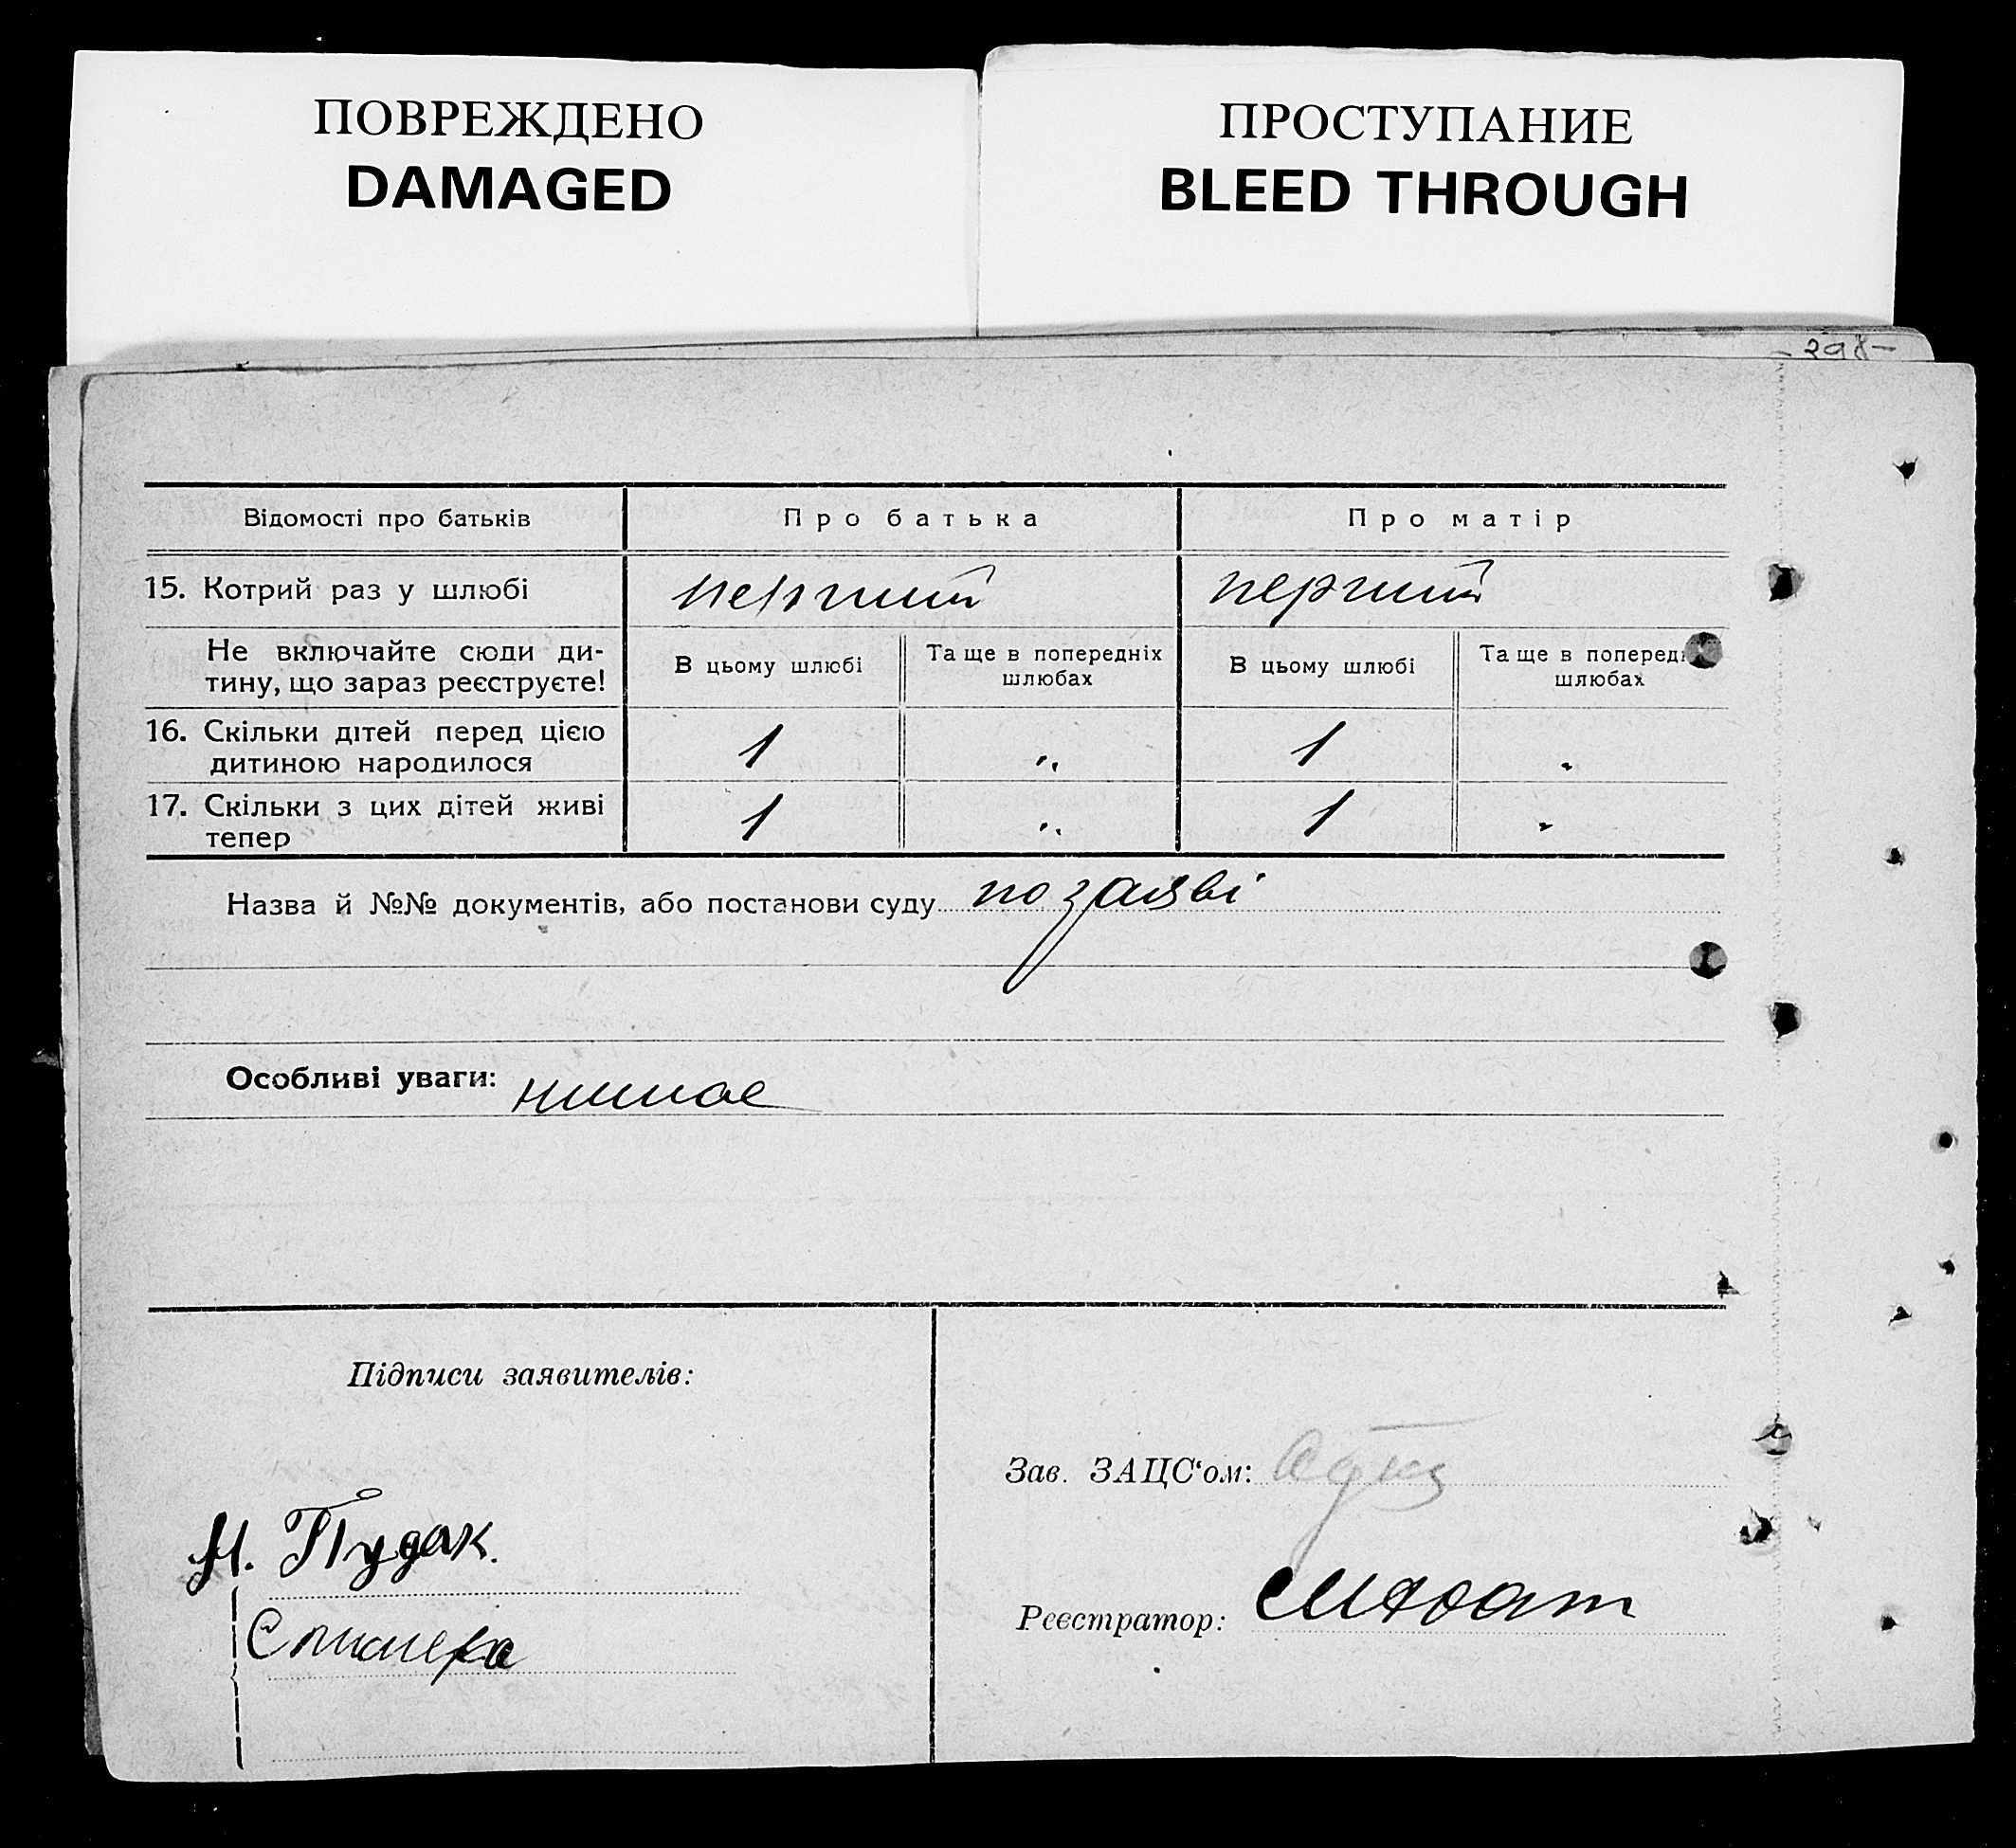 ПОВРЕЖДЕНО
DAMAGED
ПРОСТУПАНИЕ
BLEED THROUGH
Відомості про батьків
Про батька
Про матір
15. Котрий раз у шлюбі
перший
перший
Не включайте сюди ди-
тину, що зараз реєструєте!
В цьому шлюбі
Та ще в попередніх
шлюбах
В цьому шлюбі
Та ще в поперед
шлюбах
16. Скільки дітей перед цією
дитиною народилося
1
"
1
17. Скільки з цих дітей живі
тепер
1
"
1
"
Назва й №№ документів, або постанови суду по заяві
Особливі уваги: нимає
Підписи заявителів:
Зав. ЗАЦС'ом:
М. Пудак.
Реєстратор: